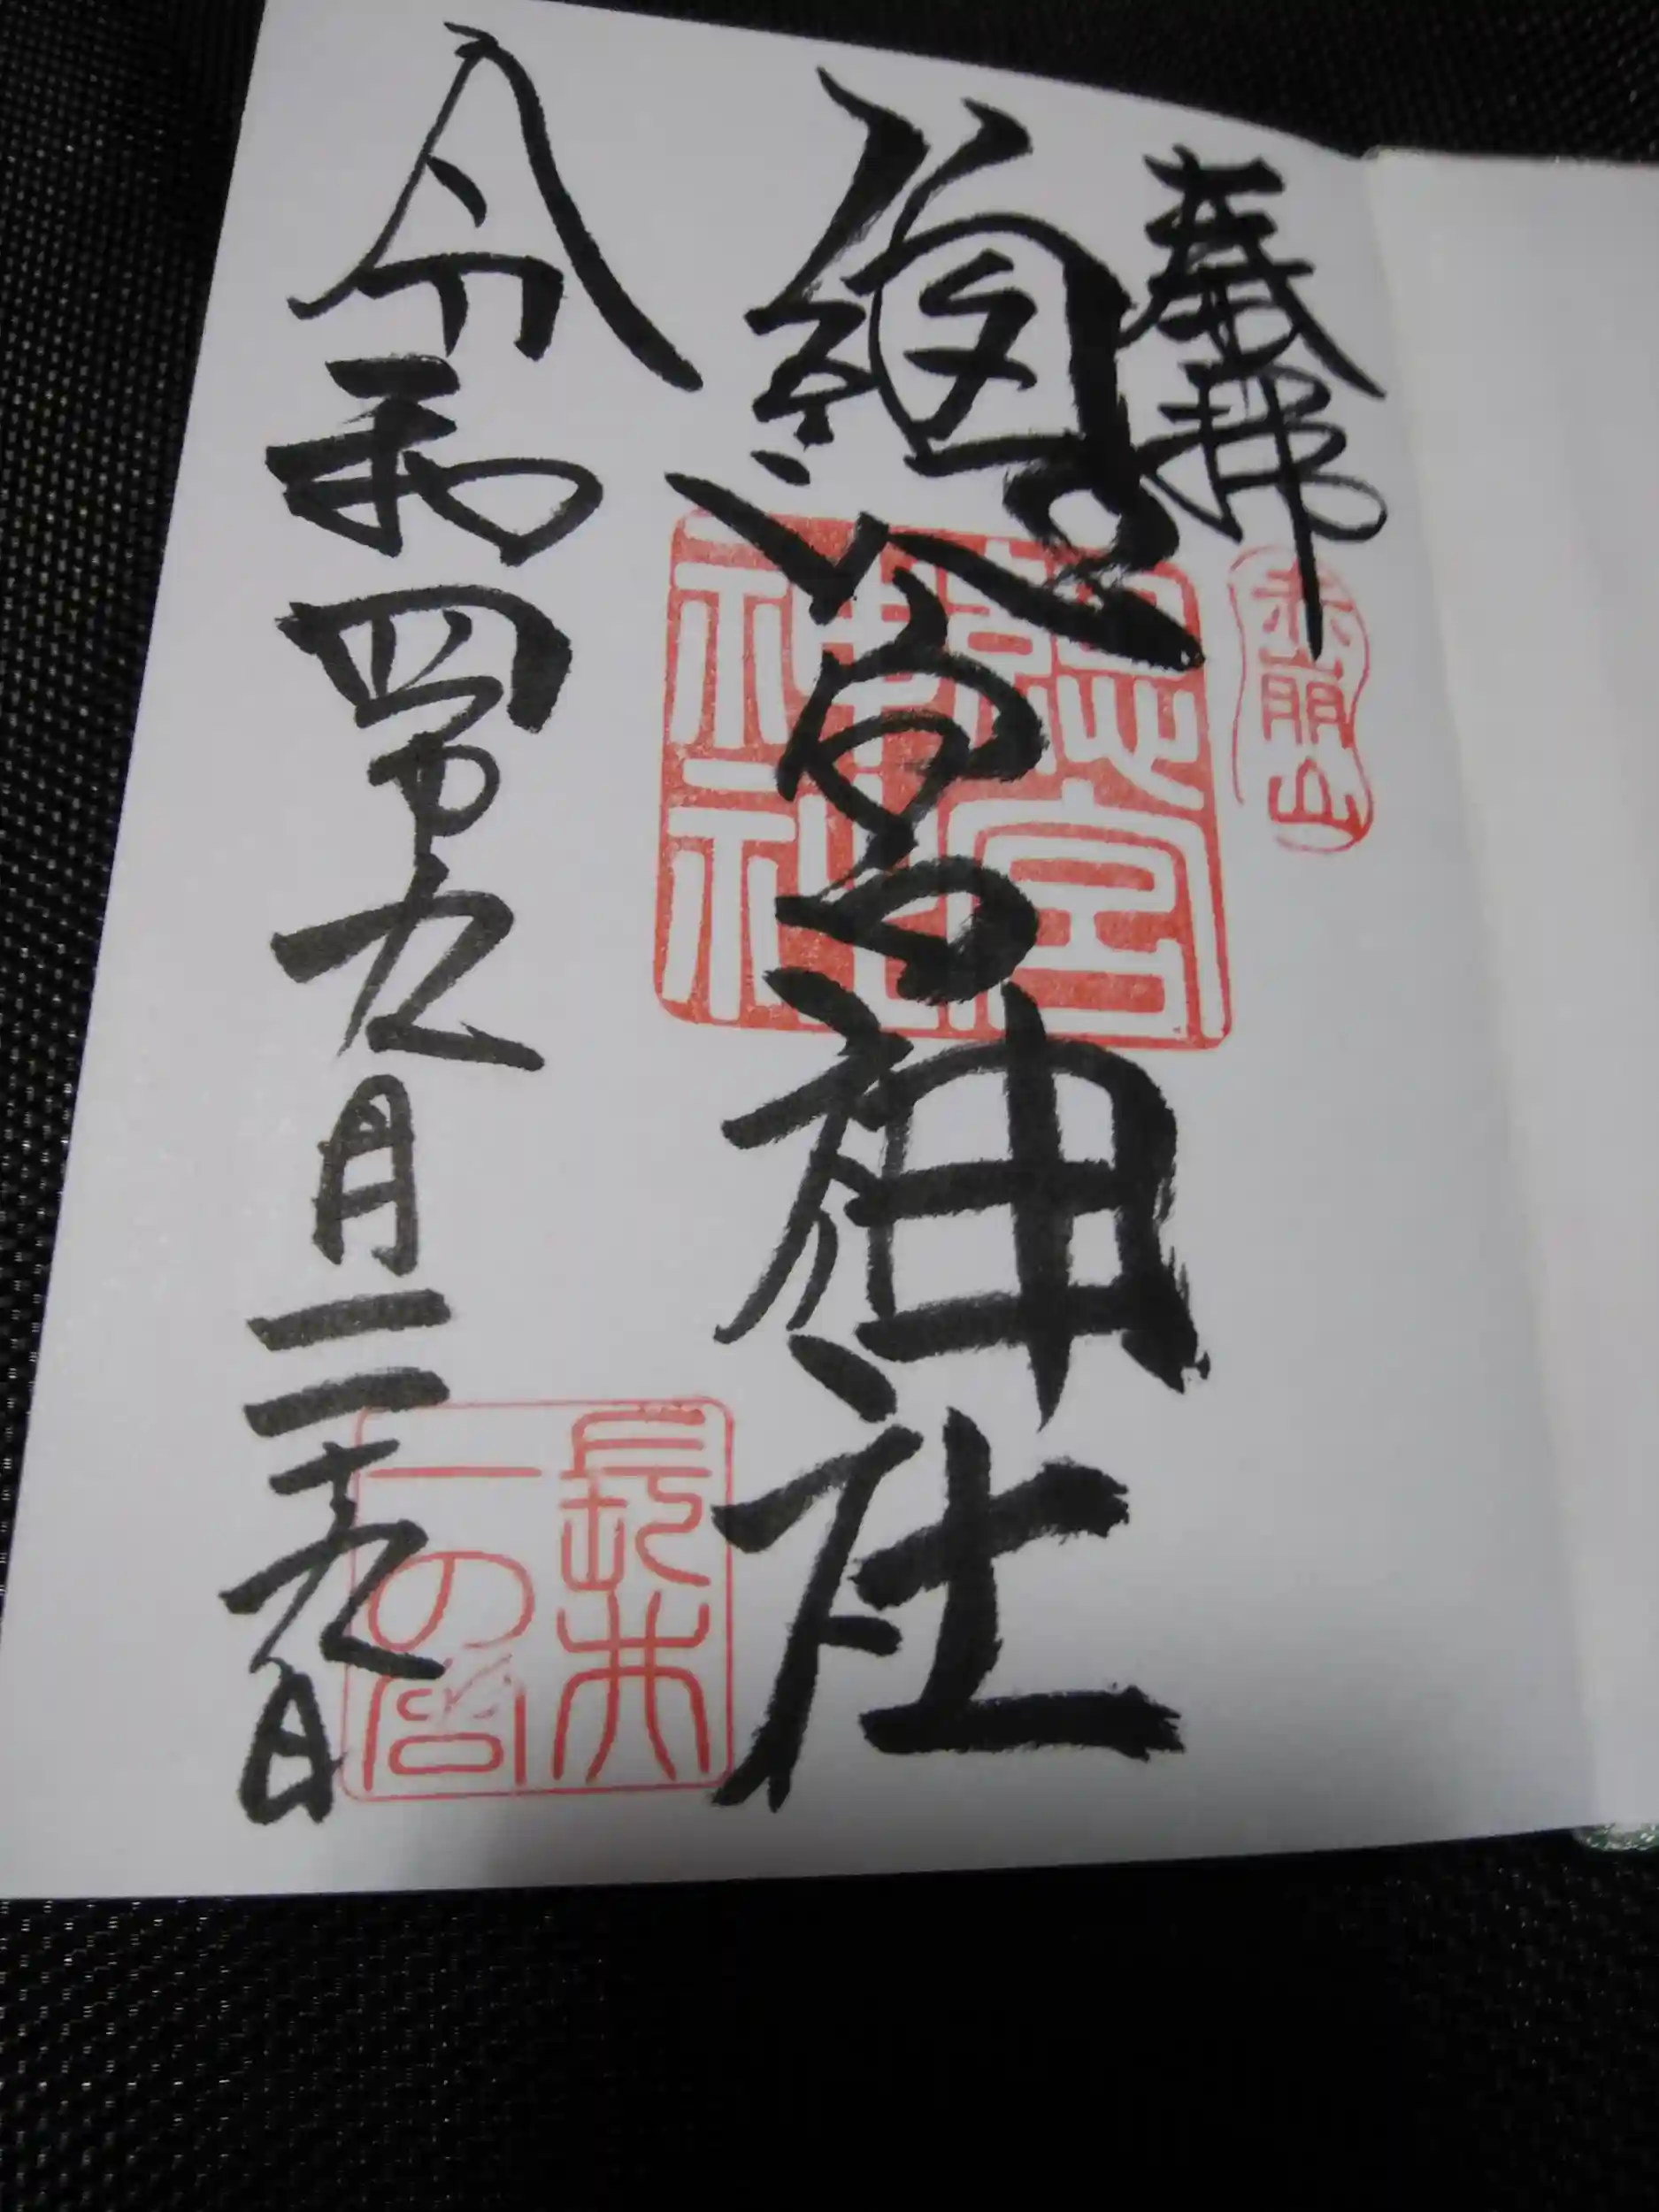 奉拝
赤崩山
總宮神社
總宮神社
令和四年九月二十九日
長井一の宮